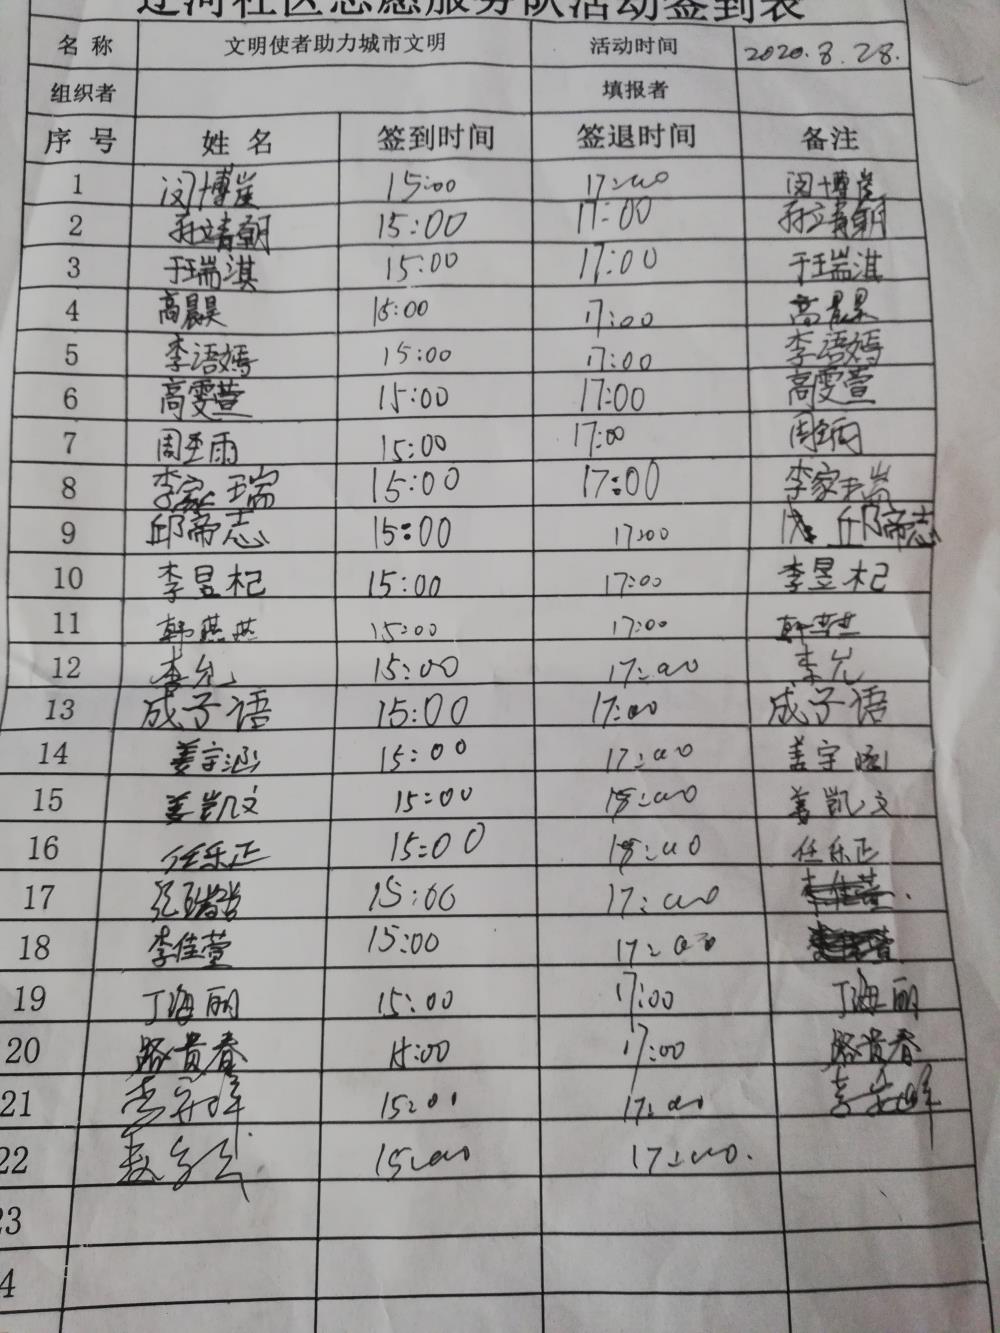 辽河社区志愿服务队活动签到表
名称 文明使者助力城市文明 活动时间 2020.8.28.
组织者 填报者
序号 姓名 签到时间 签退时间 备注
1 闵博崖 15:00 17:00 闵博崖
2 孙靖朝 15:00 17:00 孙靖朝
3 于瑞淇 15:00 17:00 于瑞淇
4 高晨昊 15:00 17:00 高晨昊
5 李语嫣 15:00 17:00 李语嫣
6 高雯萱 15:00 17:00 高雯萱
7 周雨 15:00 17:00 周雨
8 李家瑞 15:00 17:00 李家瑞
9 邱帝志 15:00 17:00 邱帝志
10 李昱杞 15:00 17:00 李昱杞
11 韩燕燕 15:00 17:00 韩
12 李允 15:00 17:00 李允
13 成子语 15:00 17:00 成子语
14 姜宇涵 15:00 17:00 姜宇涵
15 姜凯文 15:00 18:00 姜凯文
16 任乐正 15:00 18:00 任乐正
17 15:00 17:00
18 李佳萱 15:00 17:00
19 丁海丽 15:00 17:00 丁海丽
20 路贵春 15:00 17:00 路贵春
21 15:00 17:00
22 15:00 17:00.
23
4